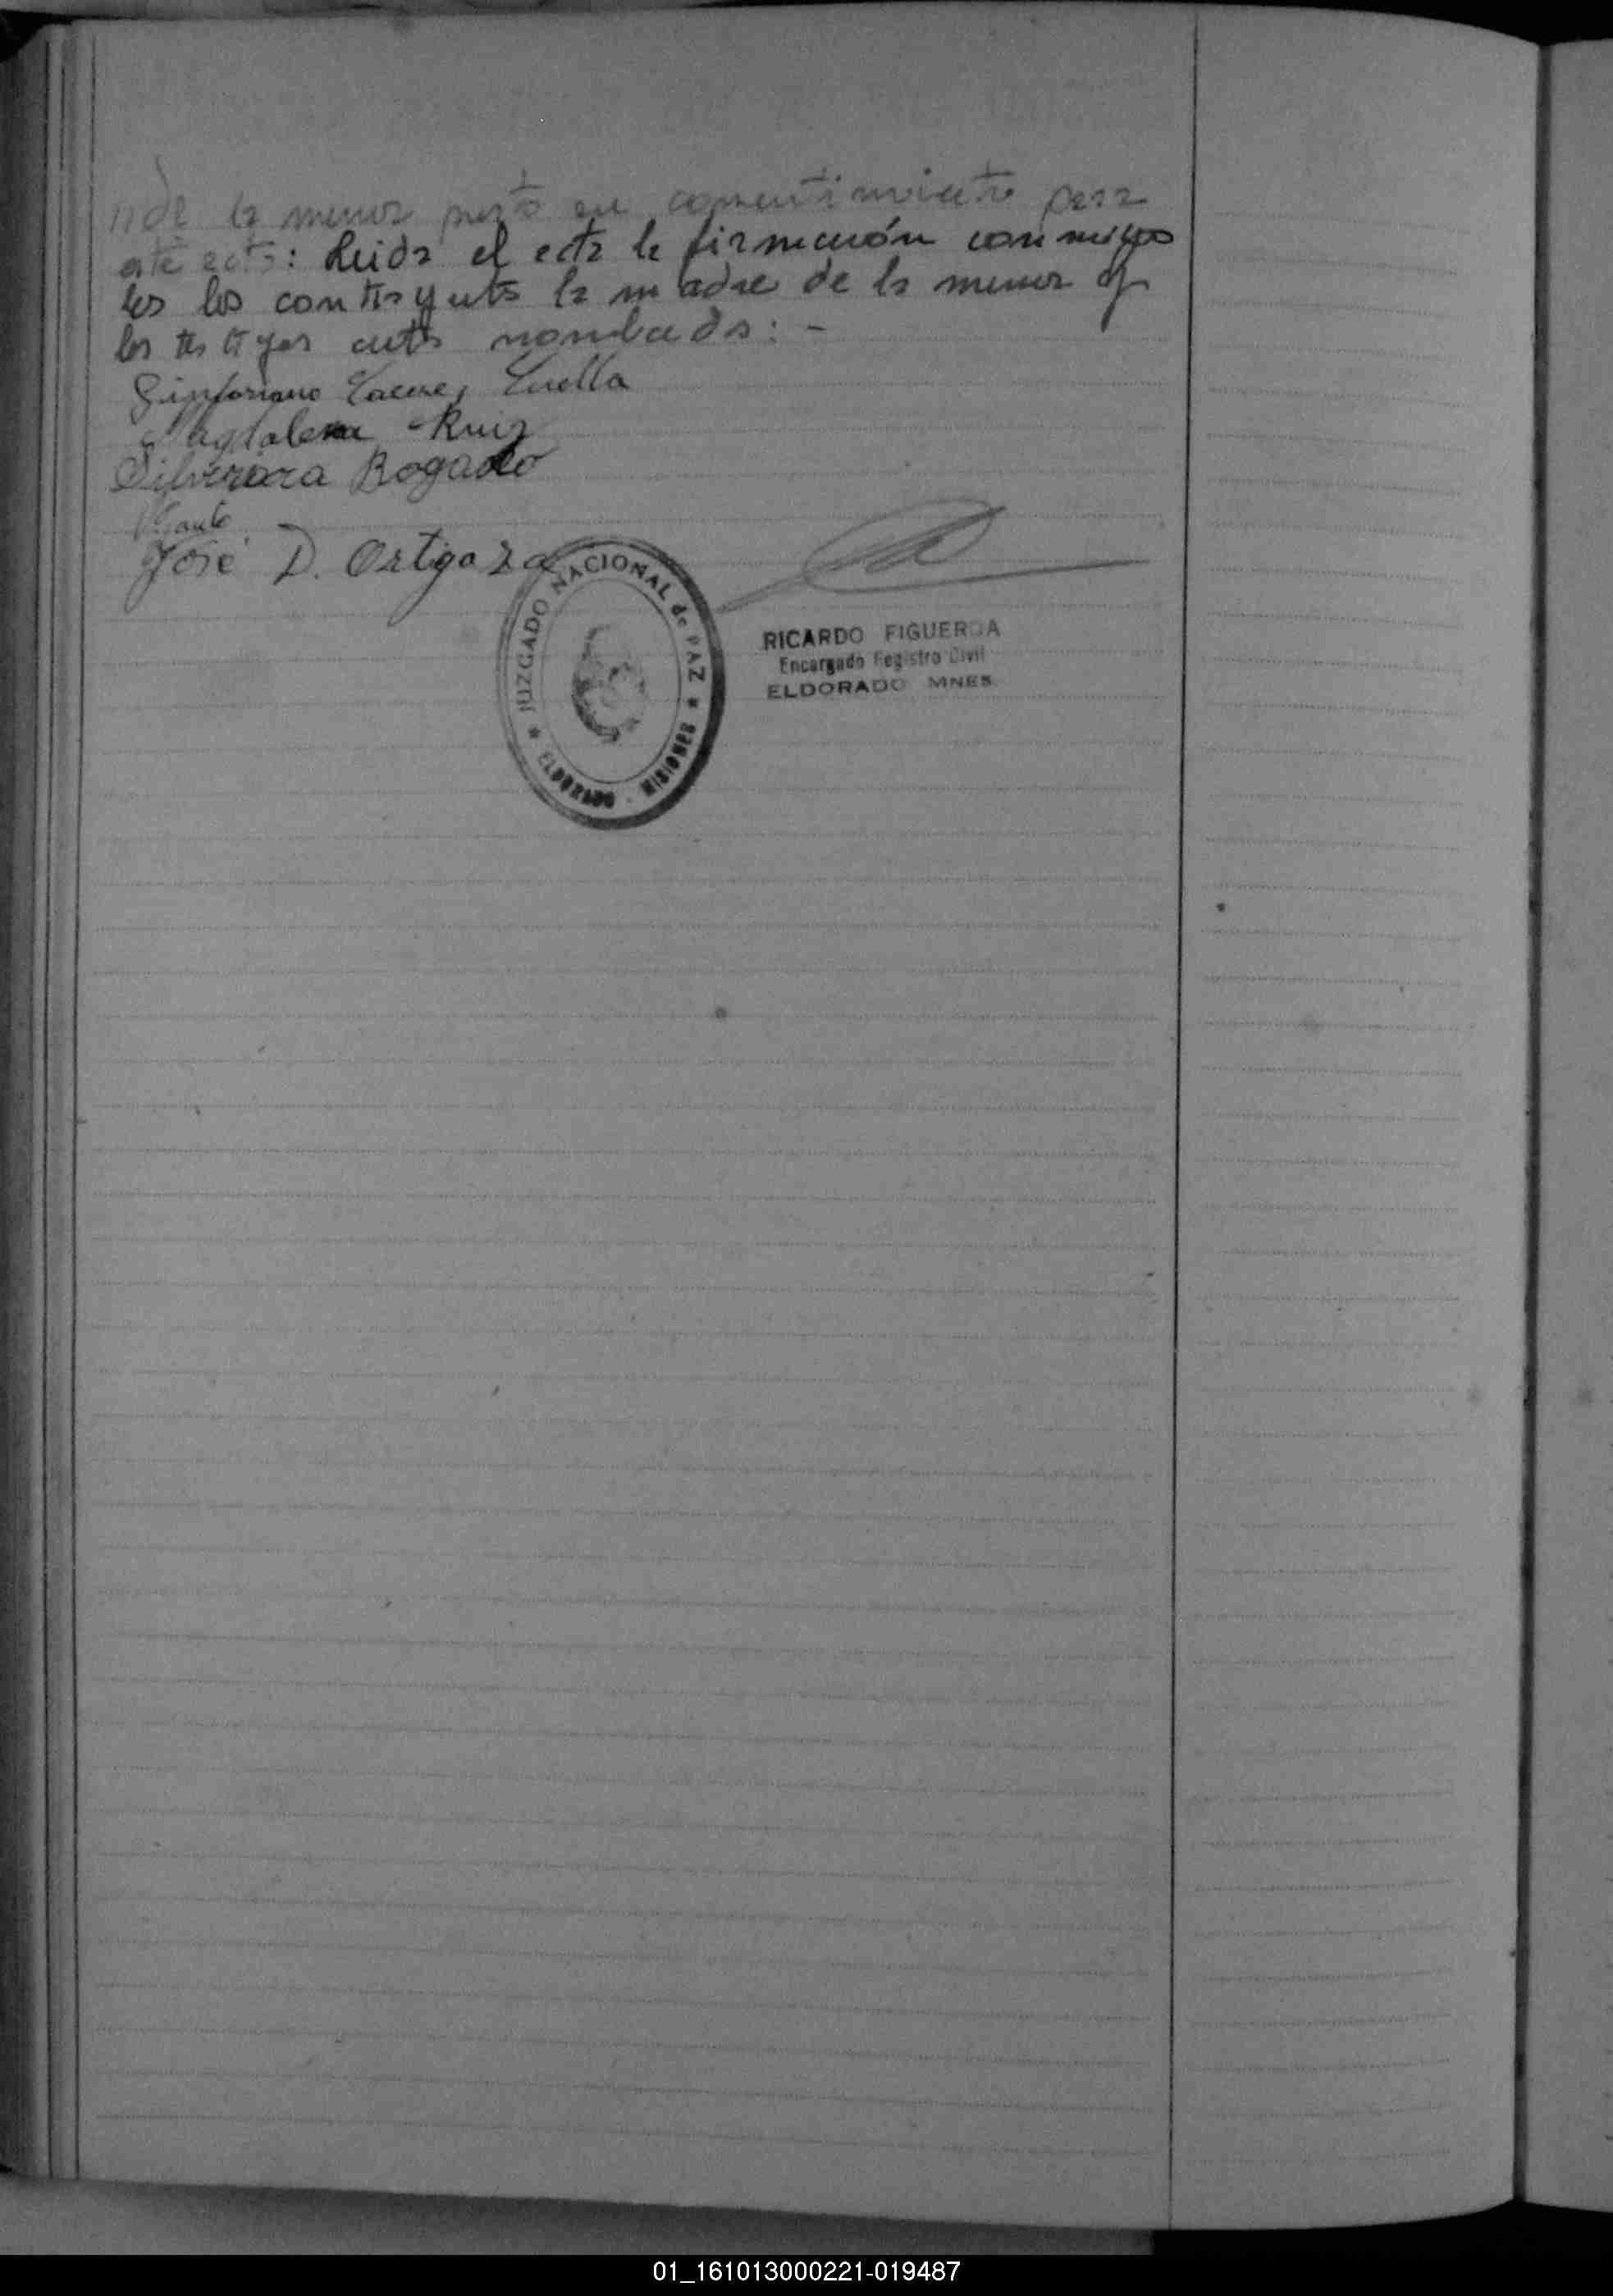 //de la menor prestó su consentimiento para
este acto: Leida el acta la firmarón conmigo
los contrayentes la madre de la menor y
los testigos antes nombrados: -
Sinforiano Cuella
Magdalena Ruiz
Silveriara Bogado
José D. Ortigoza
JUZGADO NACIONAL de PAZ
* ELDORADO - MISIONES *
RICARDO FIGUEROA
Encargado Registro Civil
ELDORADO MNES.
01_161013000221-019487